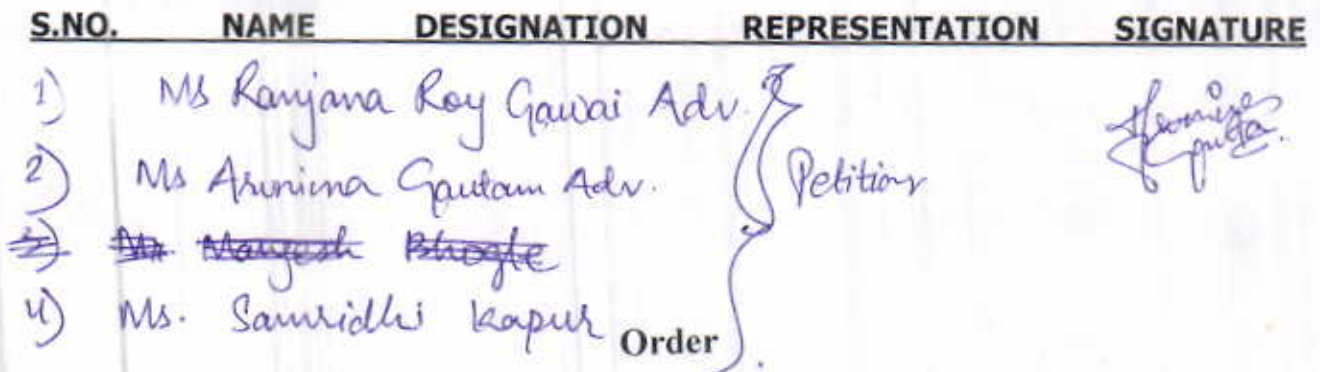 S.NO. NAME DESIGNATION REPRESENTATION SIGNATURE
1) Ms Ranjana Roy Gawai Adv.
2) Ms Arunima Gautam Adv. Petitioner
3) Mr. Mangesh Bhogle
4) Ms. Samridhi Kapur
Order